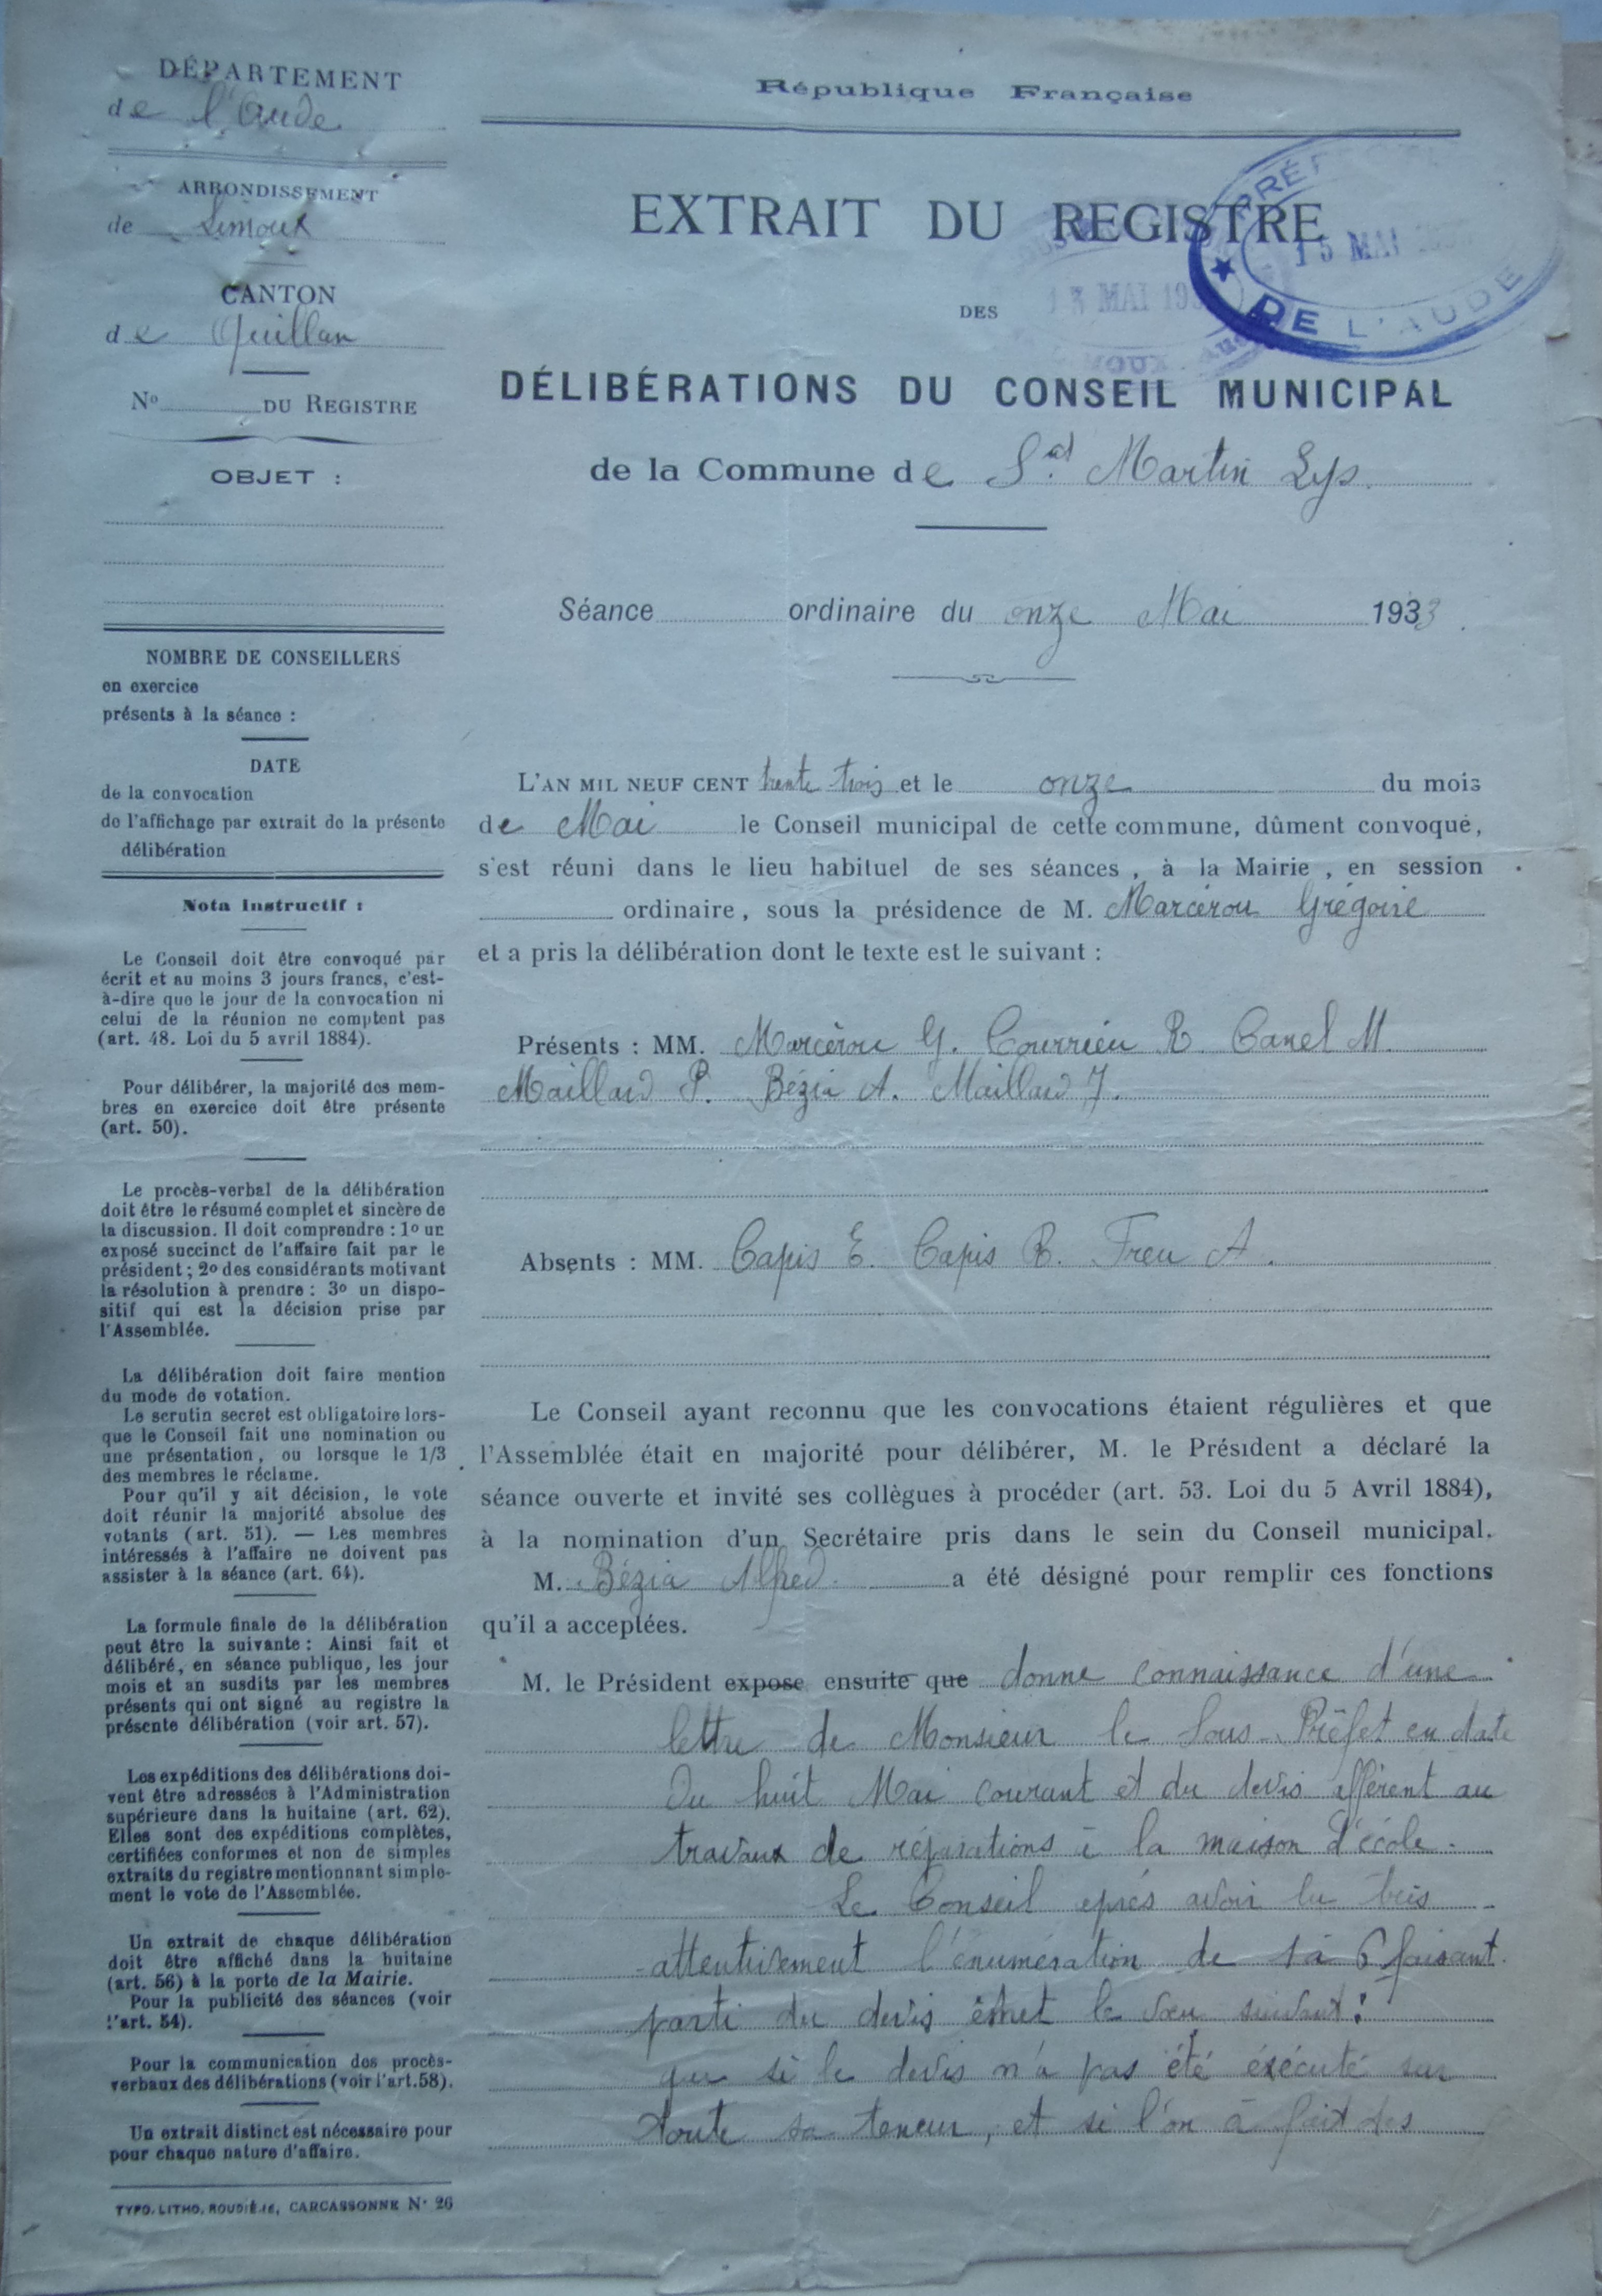 DÉPARTEMENT
de l'Aude
ARRONDISSEMENT
de Limoux
CANTON
de Quillan
No DU REGISTRE
OBJET :
NOMBRE DE CONSEILLERS
en exercice
présents à la séance :
DATE
de la convocation
de l'affichage par extrait de la présente
délibération
Nota Instructif :
Le Conseil doit être convoqué par
écrit et au moins 3 jours francs, c'est-
à-dire que le jour de la convocation ni
celui de la réunion ne comptent pas
(art. 48. Loi du 5 avril 1884).
Pour délibérer, la majorité des mem-
bres en exercice doit être présente
(art. 50).
Le procès-verbal de la délibération
doit être le résumé complet et sincère de
la discussion. Il doit comprendre : 1o un
exposé succinct de l'affaire fait par le
président ; 2o des considérants motivant
la résolution à prendre : 3o un dispo-
sitif qui est la décision prise par
l'Assemblée.
La délibération doit faire mention
du mode de votation.
Le scrutin secret est obligatoire lors-
que le Conseil fait une nomination ou
une présentation, ou lorsque le 1/3
des membres le réclame.
Pour qu'il y ait décision, le vote
doit réunir la majorité absolue des
votants (art. 51). — Les membres
intéressés à l'affaire ne doivent pas
assister à la séance (art. 64).
La formule finale de la délibération
peut être la suivante : Ainsi fait et
délibéré, en séance publique, les jour
mois et an susdits par les membres
présents qui ont signé au registre la
présente délibération (voir art. 57).
Les expéditions des délibérations doi-
vent être adressées à l'Administration
supérieure dans la huitaine (art. 62).
Elles sont des expéditions complètes,
certifiées conformes et non de simples
extraits du registre mentionnant simple-
ment le vote de l'Assemblée.
Un extrait de chaque délibération
doit être affiché dans la huitaine
(art. 56) à la porte de la Mairie.
Pour la publicité des séances (voir
l'art. 54).
Pour la communication des procès-
verbaux des délibérations (voir l'art. 58).
Un extrait distinct est nécessaire pour
pour chaque nature d'affaire.
TYPO. LITHO. ROUDIÈRE, CARCASSONNE No 26
République Française
EXTRAIT DU REGISTRE
DES
DÉLIBÉRATIONS DU CONSEIL MUNICIPAL
de la Commune de St Martin Lys.
15 MAI
DE L'AUDE
MAI 19
Séance ordinaire du onze Mai 1933.
L'AN MIL NEUF CENT trente trois et le onze du mois
de Mai le Conseil municipal de cette commune, dûment convoqué,
s'est réuni dans le lieu habituel de ses séances, à la Mairie, en session
ordinaire, sous la présidence de M. Marcérou Grégoire
et a pris la délibération dont le texte est le suivant :
Présents : MM. Marcèrou G. Courrieu R. Canel M.
Maillard P. Bézia A. Maillard J.
Absents : MM. Capis E. Capis R. Freu A.
Le Conseil ayant reconnu que les convocations étaient régulières et que
l'Assemblée était en majorité pour délibérer, M. le Président a déclaré la
séance ouverte et invité ses collègues à procéder (art. 53. Loi du 5 Avril 1884),
à la nomination d'un Secrétaire pris dans le sein du Conseil municipal.
M. Bézia Alfred a été désigné pour remplir ces fonctions
qu'il a acceptées.
M. le Président expose ensuite que donne connaissance d'une
lettre de Monsieur le Sous-Préfet en date
du huit Mai courant et du devis afférent au
travaux de réparations à la maison d'école.
Le Conseil après avoir lu très
attentivement l'énumération de 1 à 6 faisant
parti du devis émet le vœu suivant :
que si le devis n'a pas été éxécuté sur
toute sa teneur, et si l'on à fait des